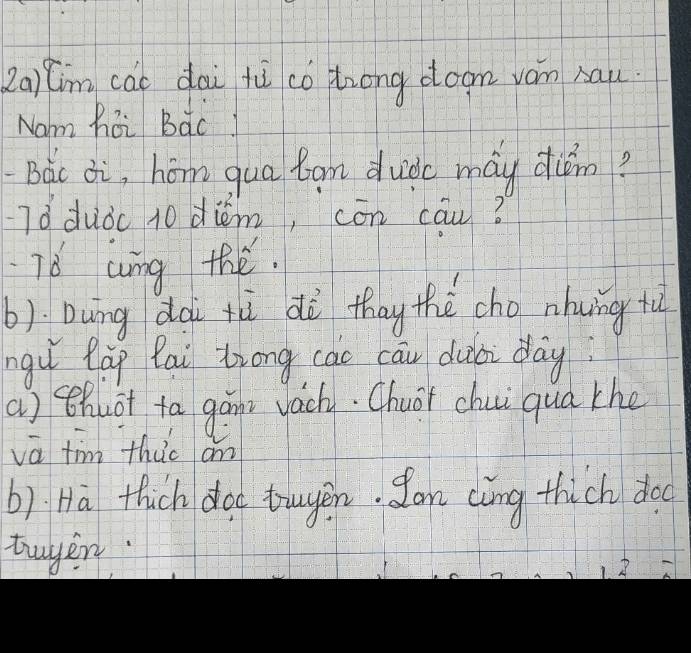 2a) Tìm các đại từ có trong đoạn văn sau.
Nam hỏi Bắc:
- Bắc ơi, hôm qua bạn được mấy điểm?
- Tớ được 10 điểm, còn cậu?
- Tớ cũng thế.
b). Dùng đại từ để thay thế cho những từ
ngữ lặp lại trong các câu dưới đây:
a) Chuột ta gặm vách. Chuột chui qua khe
và tìm thức ăn
b). Hà thích đọc truyện. Lan cũng thích đọc
truyện.